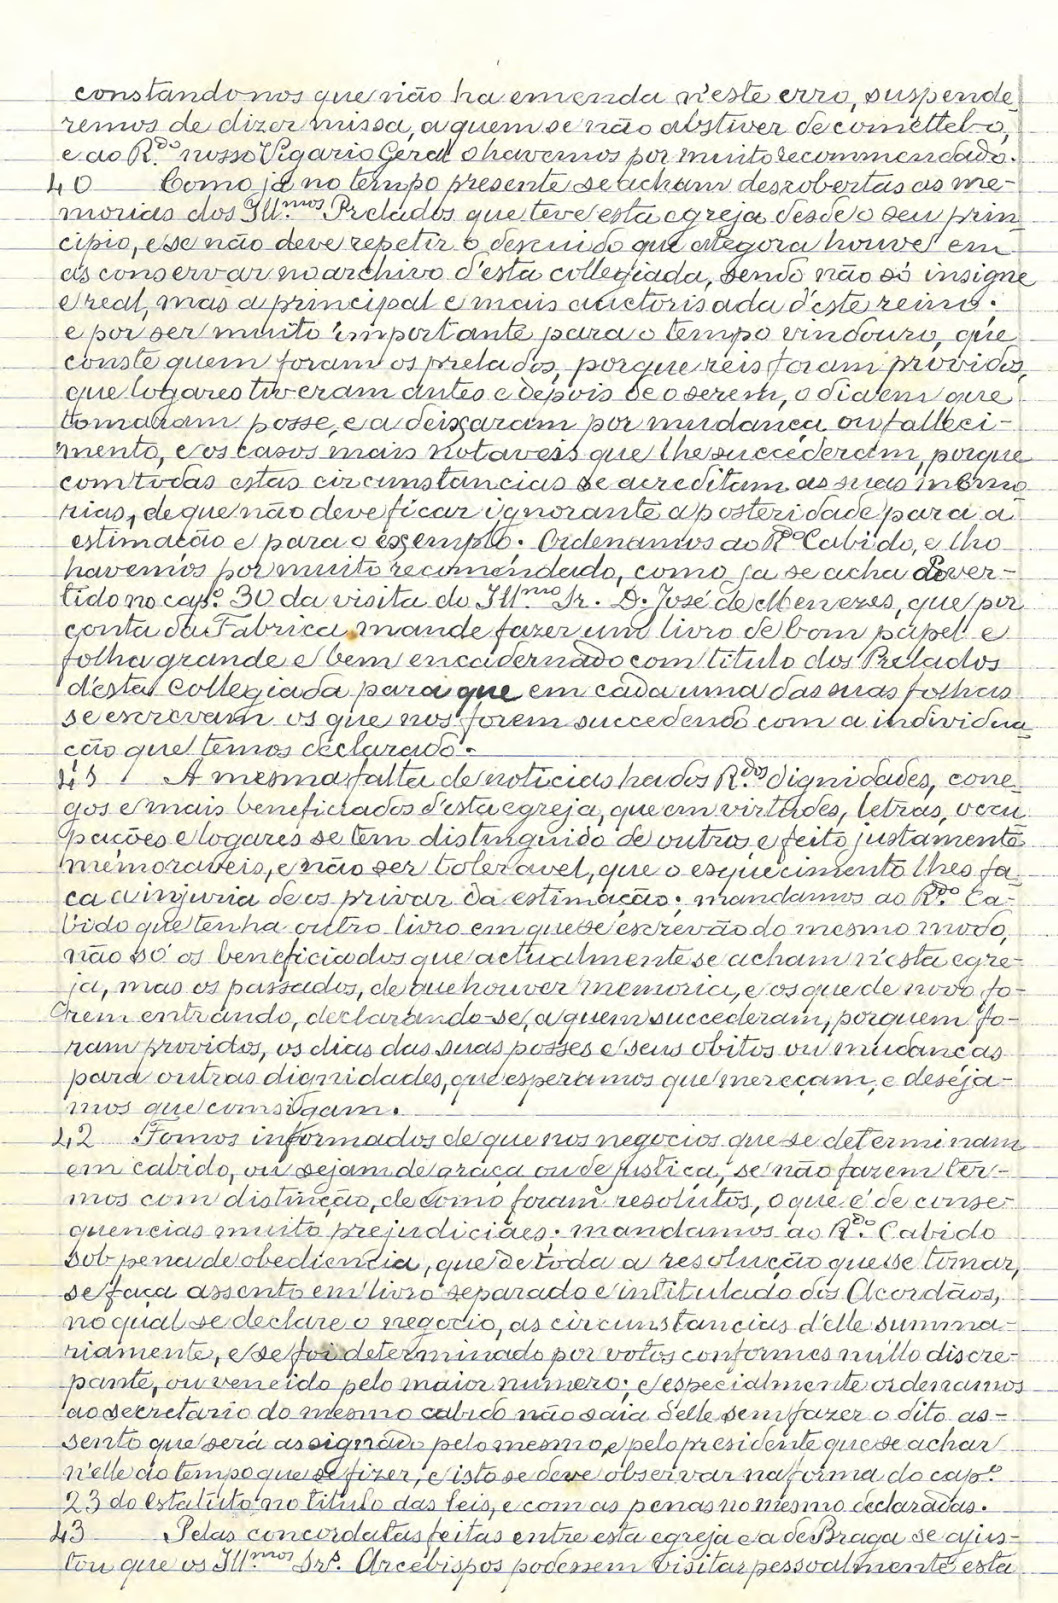 constando nos que não ha emenda n'este erro, suspende-
remos de dizer missa, a quem se não abstiver de comettel-o,
e ao R.do nosso Vigario Geral o havemos por muito recommendado.
40 Como já no tempo presente se acham descobertas as me-
morias dos Ill.mos Prelados que teve esta egreja desde o seu prin-
cipio, e se não deve repetir o descuido que ategora houve em
as conservar no archivo d'esta collegiada, sendo não só insigne
e real, mas a principal e mais auctorisada d'este reino:
e por ser muito importante para o tempo vindouro, que
conste quem foram os prelados, porque reis foram providos,
que logares tiveram antes e depois de o serem, o dia em que
tomaram posse, e a deixaram por mudança ou falleci-
mento, e os casos mais notaveis que lhe succederam, porque
com todas estas circumstancias se acreditam as suas memo
rias, de que não deve ficar ignorante a posteridade para a
estimação e para o exemplo. Ordenamos ao R.do Cabido, e lho
havemos por muito recomendado, como ja se acha adver-
tido no cap.o 30 da visita do Ill.mo Sr. D. José de Menezes, que por
conta da Fabrica mande fazer um livro de bom papel e
folha grande e bem encadernado com titulo dos Prelados
d'esta Collegiada para que em cada uma das suas folhas
se escrevam os que nos forem succedendo com a individua
ção que temos declarado.
41 A mesma falta de noticias ha dos R.dos dignidades, cone-
gos e mais beneficiados d'esta egreja, que em virtudes, letras, occu
pações e logares se têm distinguido de outros e feito justamente
memoraveis, e não ser toleravel, que o esquecimento lhes fa-
ça a injuria de os privar da estimação; mandamos ao R.do Ca-
bido que tenha outro livro em que se escrevão do mesmo modo,
não só os beneficiados que actualmente se acham n'esta egre-
ja, mas os passados, de que houver memoria, e os que de novo fo-
rem entrando, declarando-se, a quem succederam, por quem fo-
ram providos, os dias das suas posses e seus obitos ou mudanças
para outras dignidades, que esperamos que mereçam, e deseja-
mos que comsigam.
42 Fomos informados de que nos negocios que se determinam
em cabido, ou sejam de graça ou de justiça, se não fazem ter-
mos com distinção, de como foram resolutos, o que é de conse-
quencias muito prejudiciaes; mandamos ao R.do Cabido
sob pena de obediencia, que de toda a resolução que se tomar,
se faça assento em livro separado e intitulado dos Acordãos,
no qual se declare o negocio, as circunstancias d'elle summa-
riamente, e se foi determinado por votos conformes nullo discre-
pante, ou vencido pelo maior numero; e especialmente ordenamos
ao secretario do mesmo cabido não saia d'elle sem fazer o dito as-
sento que será assignado pelo mesmo, e pelo presidente que se achar
n'elle ao tempo que se fizer; e isto se deve observar na forma do cap.o
23 do estatuto no titulo das leis, e com as penas no mesmo declaradas.
43 Pelas concordatas feitas entre esta egreja e a de Braga se ajus-
tou que os Ill.mos Srs. Arcebispos podessem visitar pessoalmente esta